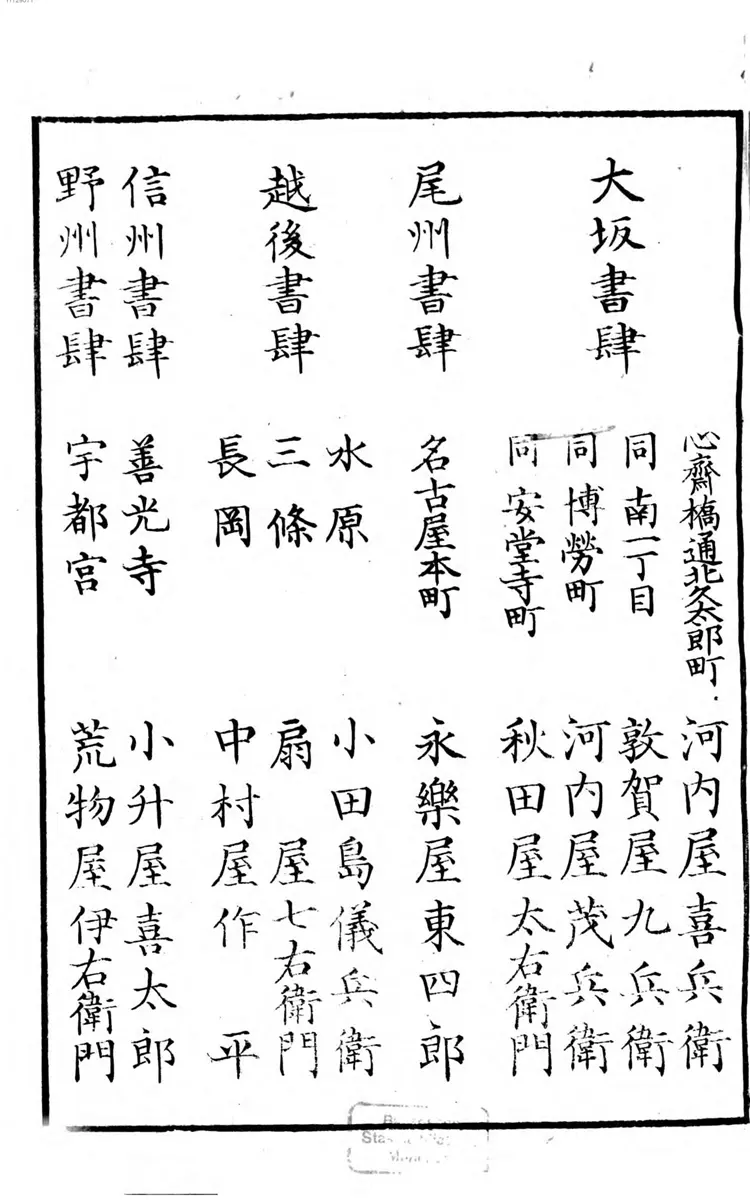 大坂書肆
心齋橋通北久太郎町 河内屋喜兵衛
同南一丁目 敦賀屋九兵衛
同博勞町 河内屋茂兵衛
同安堂寺町 秋田屋太右衛門
尾州書肆 名古屋本町 永樂屋東四郎
越後書肆
水原 小田島儀兵衛
三條 扇屋七右衛門
長岡 中村屋作平
信州書肆 善光寺 小升屋喜太郎
野州書肆 宇都宮 荒物屋伊右衛門